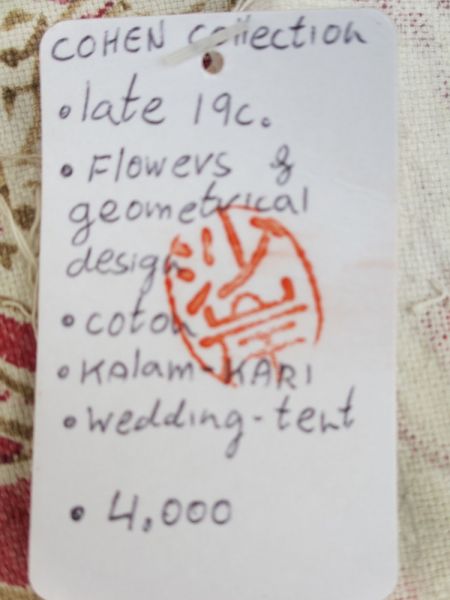 COHEN collection
• late 19c.
• Flowers &
geometrical
design
• coton
• KAlam-KARI
• wedding-tent
• 4,000